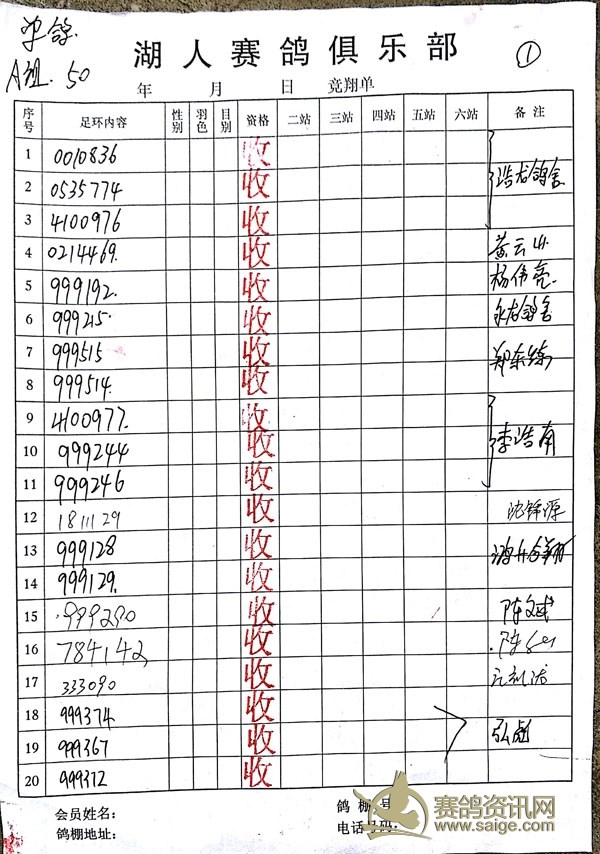 单鸽
湖人赛鸽俱乐部
①
A组. 50
年 月 日 竞翔单
序号 足环内容 性别 羽色 目别 资格 二站 三站 四站 五站 六站 备注
1 0010836 收
2 0535774 收 浩龙鸽舍
3 4100976 收
4 0214469. 收 黄云山
5 999192. 收 杨伟亮
6 999215. 收 永龙鸽舍
7 999515 收
8 999514. 收
9 4100977. 收
10 999244 收 李浩南
11 999246 收
12 1811129 收 沈锦源
13 999128 收
14 999129. 收
15 999290 收 陈文斌
16 784142 收
17 333090 收
18 999374 收
19 999367 收 弘彪
20 999372 收
会员姓名: 鸽棚 号
鸽棚地址: 电话号码:
赛鸽资讯网
www.saige.com